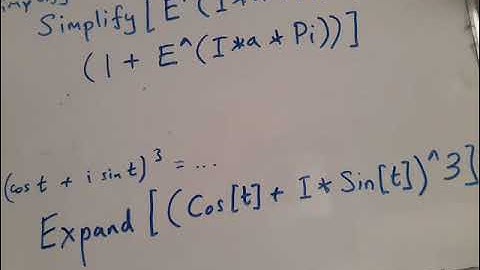 Simplify[E^(I*
(1 + E^(I*a * Pi))]
(cos t + i sin t)^3 = ...
Expand [(Cos[t] + I* Sin[t])^3]